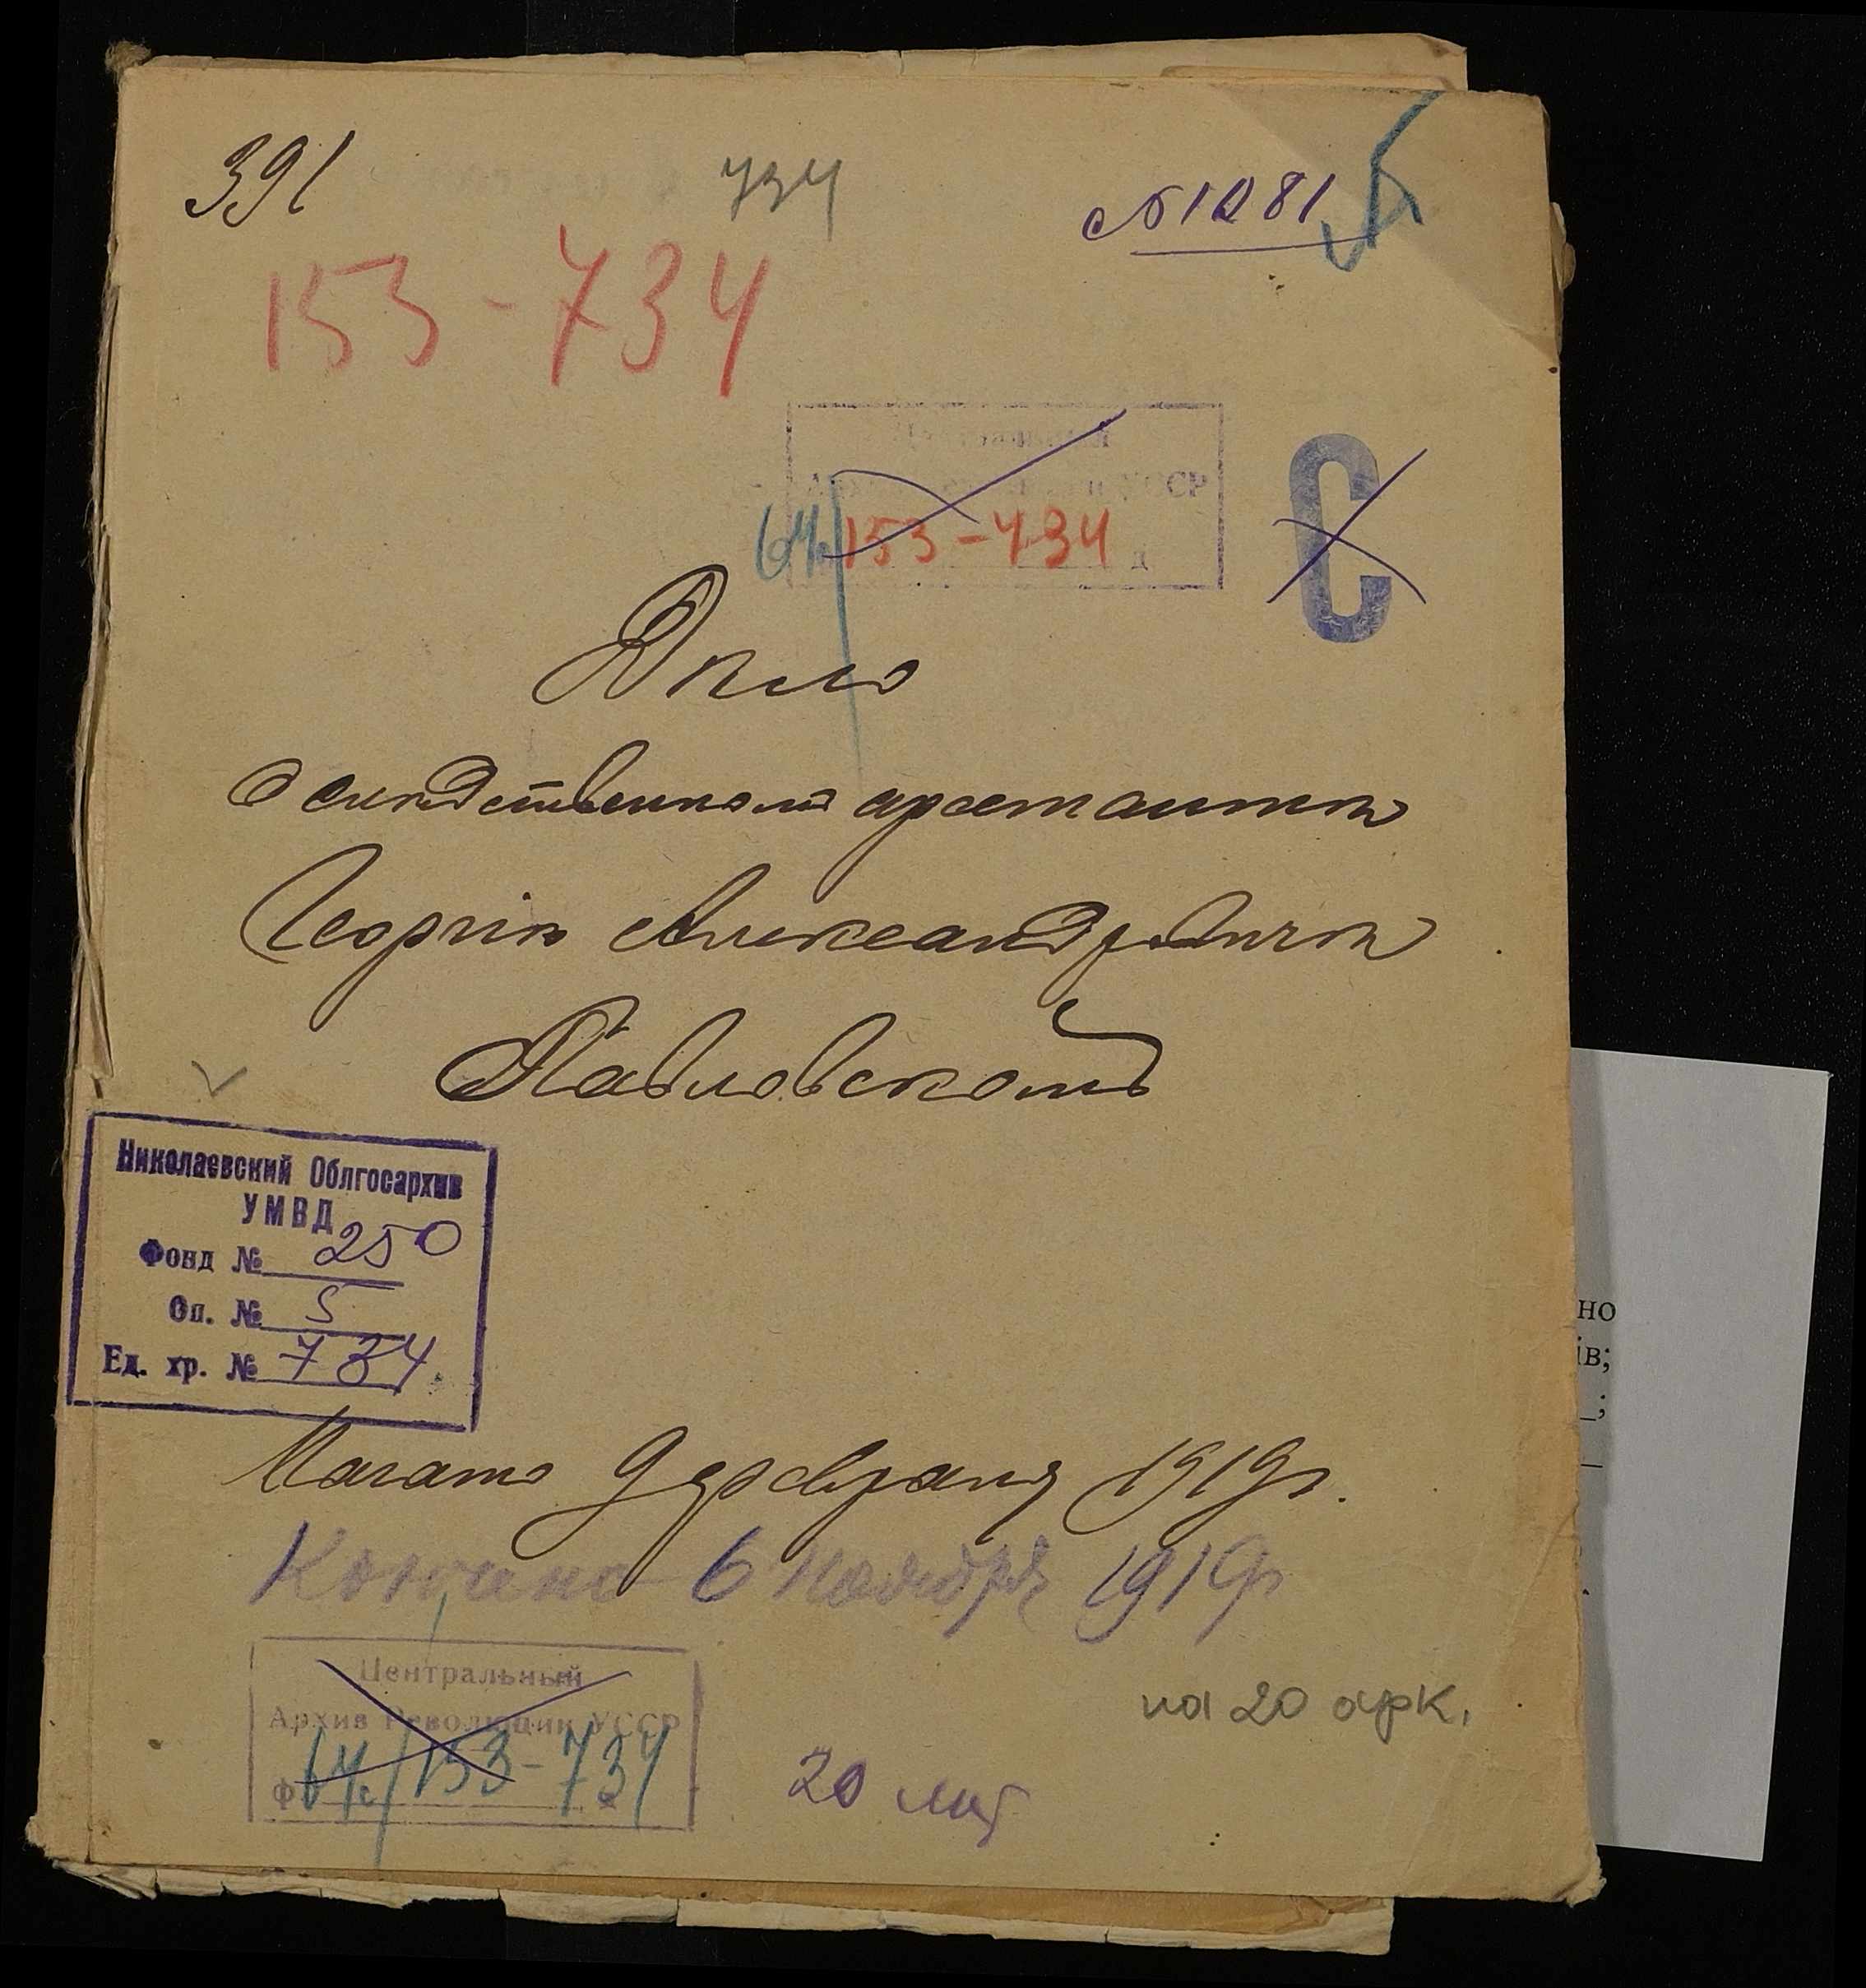 391
734
№ 1281
153-734
Центральный
Архив Революции УССР
153-734 д
С
Дѣло
о слѣдственномъ арестантѣ
Георгіѣ Александровичѣ
Павловскомъ
Николаевский Облгосархив
УМВД
Фонд № 250
Оп. № 5
Ед. хр. № 734
Начато 9 февраля 1919 г.
Кончено 6 ноября 1919 г
Центральный
Архив Революции УССР
Ф 153-734
на 20 арк.
20 лис
но
ів;
_;